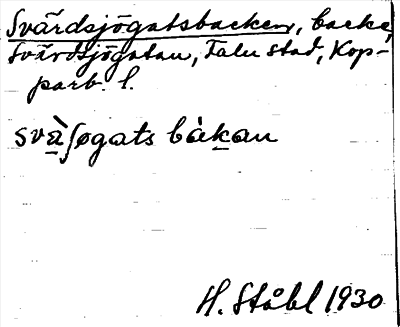 Svärdsjögatsbacken, backe,
Svärdsjögatan, Falu stad, Kop-
parb. l.
svä̀ʃøgats bàkan
H. Ståhl 1930